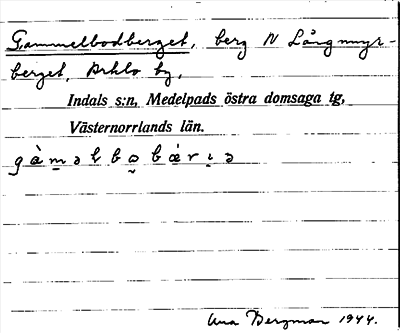 Gammelbodberget, berg N Långmyr-
berget, by,
Indals s:n, Medelpads östra domsaga tg,
Västernorrlands län.
Bergman 1944.